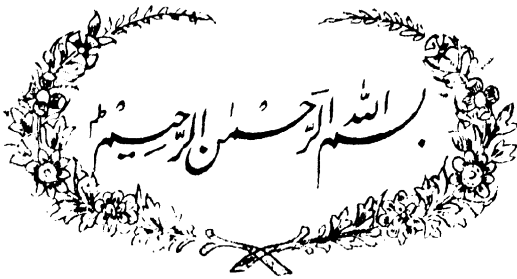 بسم الله الرَّحمٰن الرَّحِيم ط